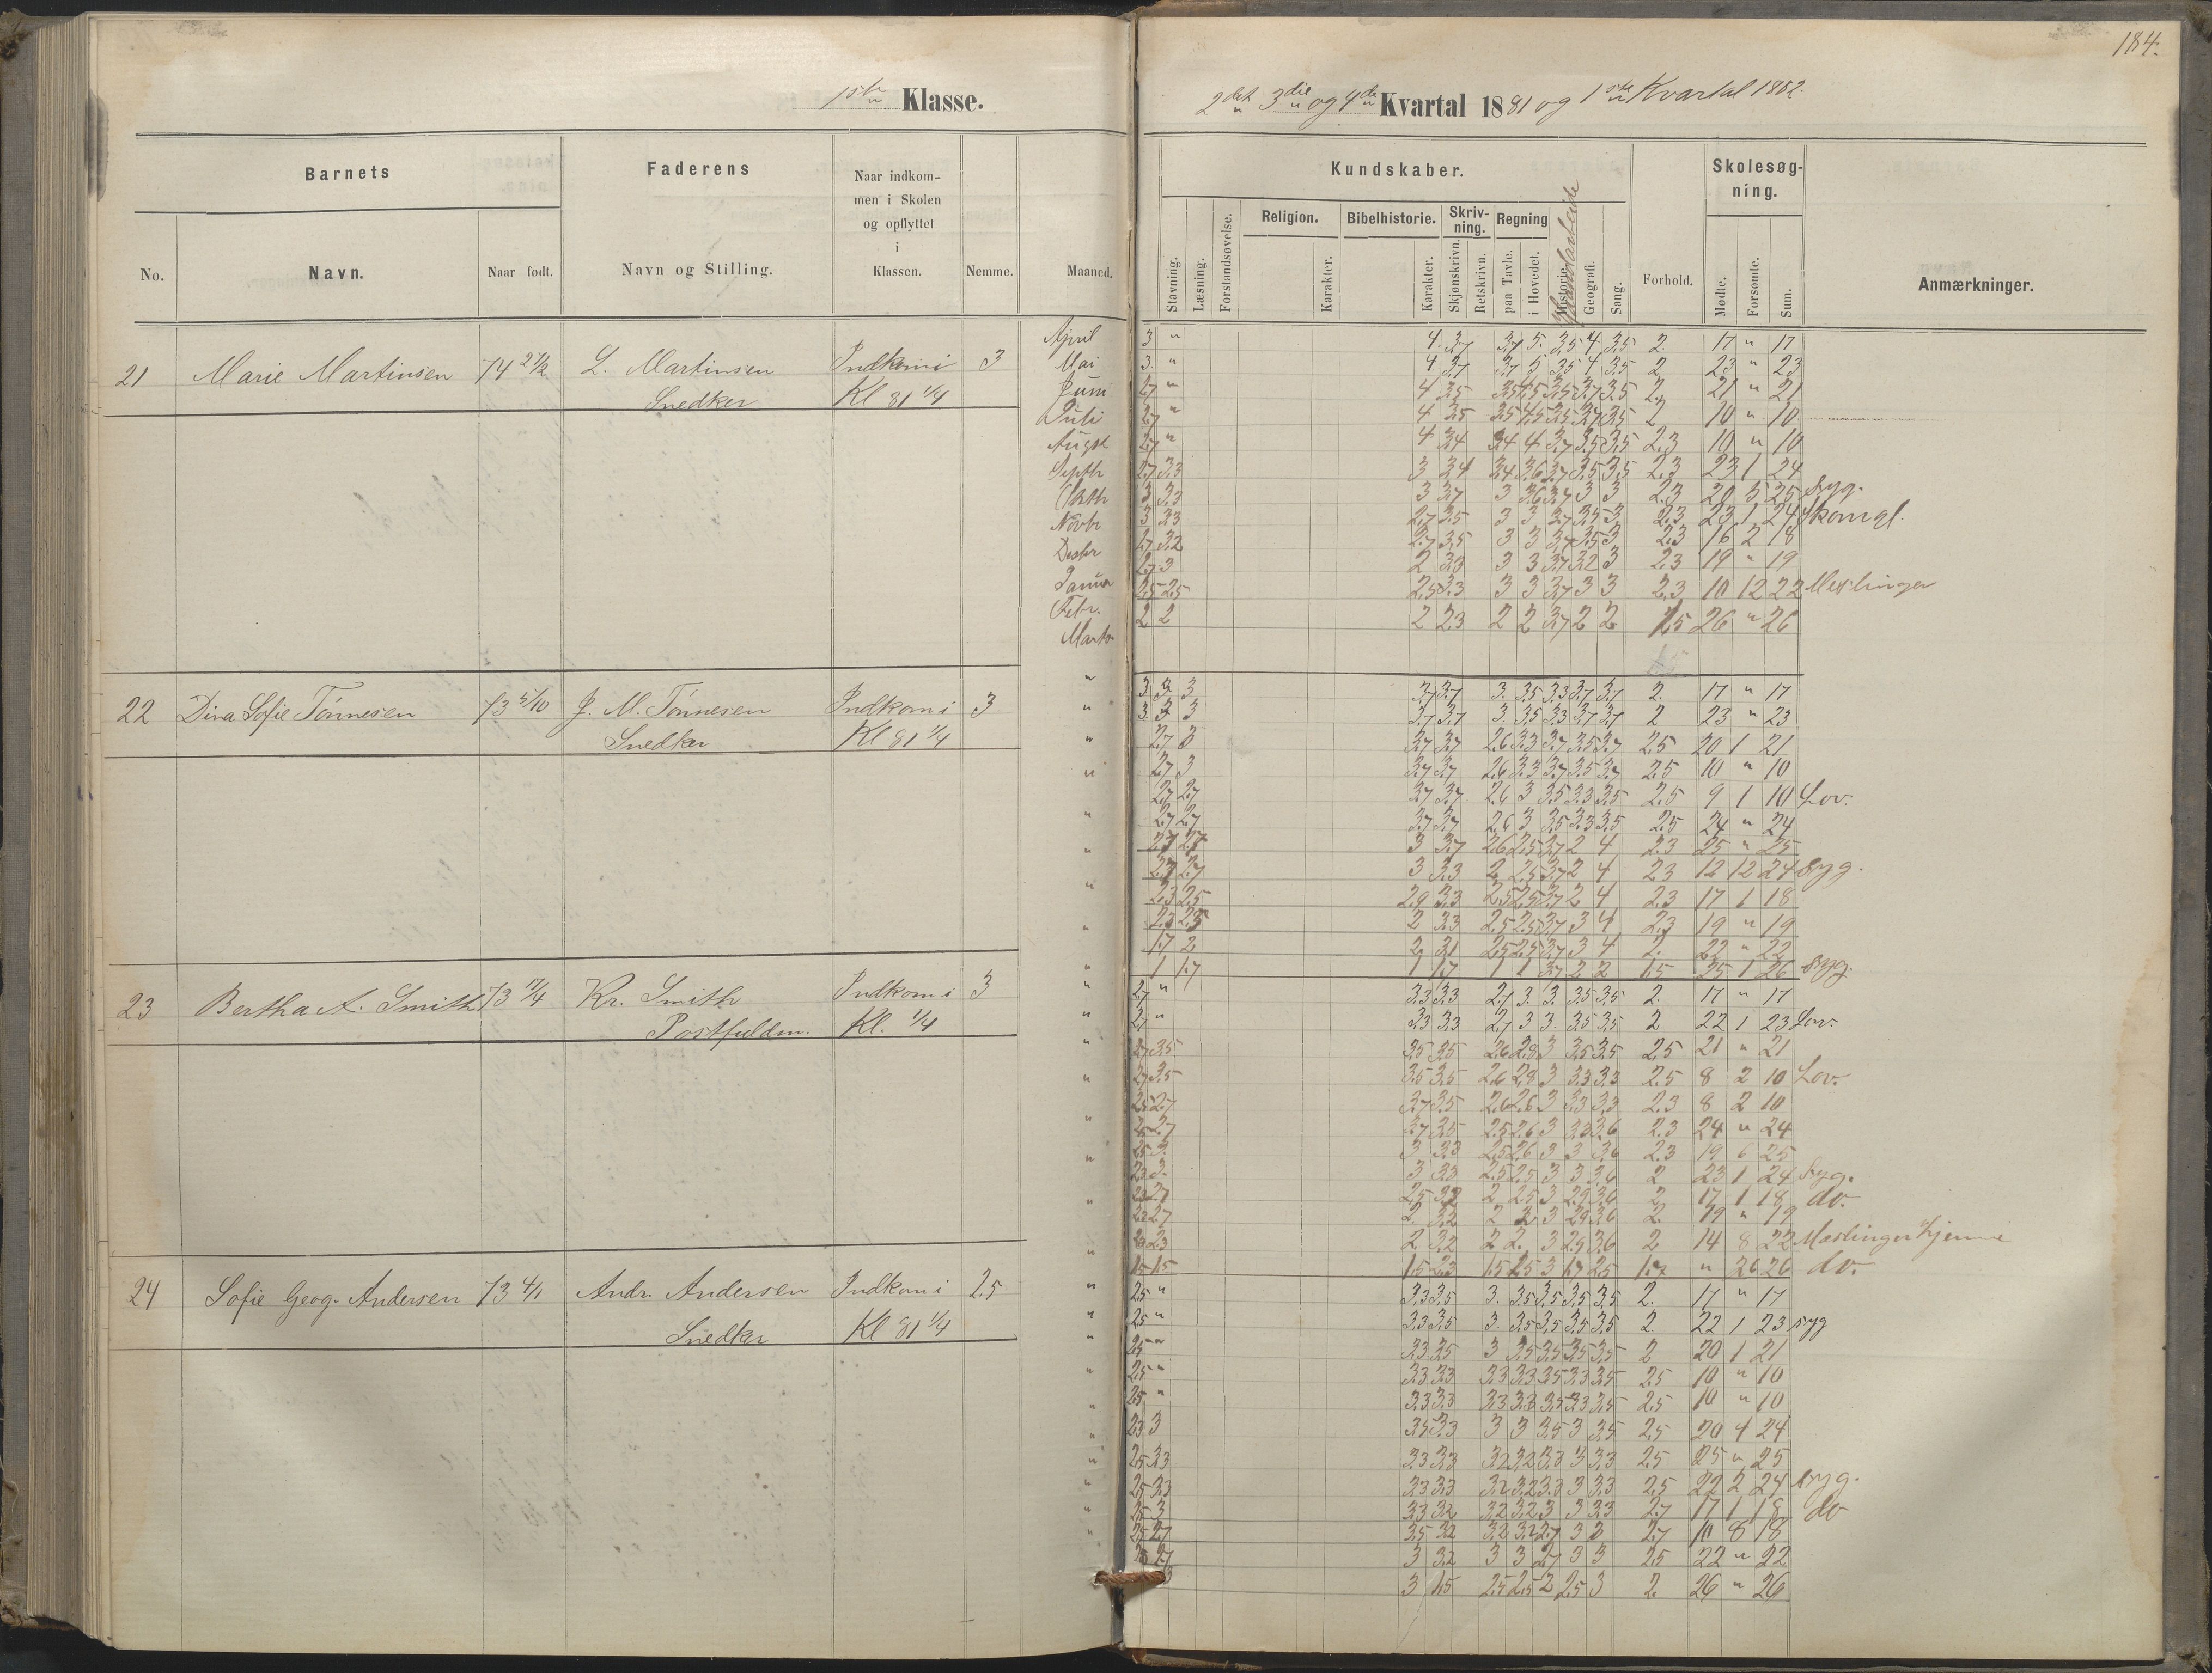 184.
1ste Klasse.
2det 3die og 4de Kvartal 1881 og 1ste Kvartal 1882.
Barnets
Faderens
Naar indkom-
men i Skolen
og opflyttet
i
Klassen.
No.
Navn.
Naar født.
Navn og Stilling.
Nemme.
Maaned.
Kundskaber.
Skolesøg-
ning.
Religion.
Bibelhistorie.
Skriv-
ning.
Regning
Stavning.
Læsning.
Forstandsøvelse.
Karakter.
Karakter.
Skjønskrivn.
Retskrivn.
paa Tavle.
i Hovedet.
Historie.
Haandarbeide
Geografi.
Sang.
Forhold.
Mødte.
Forsømte.
Sum.
Anmærkninger.
21 Marie Martinsen 74 L. Martinsen Indkom i 3
Snedker Kl 81 1/4
April 3 " 4. 3,7 3,7 5. 3,5 4 3,5 2. 17 " 17
Mai 3. " 4 3,7 3,7 5 3,5 4 3,5 2 23 " 23
Juni 2,7 " 4 3,5 3,5 4,5 3,5 3,7 3,5 2, 21 " 21
Juli 2,7 " 4 3,5 3,5 4,5 3,5 3,7 3,5 2 10 " 10
Augst 2,7 " 4 3,4 3,4 4 3,7 3,5 3,5 2,3 10 " 10
Septbr 2,7 3,3 3 3,4 3,4 3,6 3,7 3,5 3,5 2,3 23 1 24
Oktbr 3 3,3 3 3,7 3 3,6 3,7 3 3 2,3 20 5 25 syg.
Novbr 3 3,3 2,7 3,5 3 3 3,7 3,5 3 2,3 23 1 24 skomgl.
Desbr 2,7 3,2 2,7 3,5 3 3 3,7 3,5 3 2,3 16 2 18
Januar 2,7 3 2 3,3 3 3 3,7 3,2 3 2,3 19 " 19
Febr. 2,5 2,5 2,5 3,3 3 3 3,7 3 3 2,3 10 12 22 Meslinger
Marts 2 2 2 2,3 2 2 3,7 2 2 1,5 26 " 26
22 Dina Sofie Tønnesen 73 5/10 J. M. Tønnesen Indkom i 3
Snedker Kl 81 1/4
3. 3 3 3,7 3,7 3. 3,5 3,3 3,7 3,7 2. 17 " 17
3. 3 3 3,7 3,7 3. 3,5 3,3 3,7 3,7 2 23 " 23
2,7 3 3,7 3,7 2,6 3,3 3,7 3,5 3,7 2,5 20 1 21
2,7 3 3,7 3,7 2,6 3,3 3,7 3,5 3,7 2,5 10 " 10
2,7 2,7 3,7 3,7 2,6 3 3,5 3,3 3,5 2,5 9 1 10 Lov.
2,7 2,7 3,7 3,7 2,6 3 3,5 3,3 3,5 2,5 24 " 24
2,7 2,7 3 3,7 2,6 2,5 3,7 2 4 2,3 25 " 25
2,7 2,7 3 3,3 2 2,5 3,7 2 4 2,3 12 12 24 syg.
2,3 2,5 2,9 3,3 2,5 2,5 3,7 2 4 2,3 17 1 18
2,3 2,5 2 3,3 2,5 2,5 3,7 3 4 2,3 19 " 19
1,7 2 2, 3,1 2,5 2,5 3,7 3 4 2. 22 " 22
1 1,7 1 1,7 1 1 3,7 2 2 1,5 25 1 26 syg.
23 Bertha A. Smith 73 Kr. Smith Indkom i 3
Postfuldm. Kl. 1/4
2,7 " 3,3 3,3 2,7 3. 3. 3,5 3,5 2. 17 " 17
2,7 " 3,3 3,3 2,7 3 3. 3,5 3,5 2 22 1 23 Lov.
2,7 3,5 3,5 3,5 2,6 2,8 3 3,5 3,5 2,5 21 " 21
2,7 3,5 3,5 3,5 2,6 2,8 3 3,3 3,3 2,5 8 2 10 Lov.
2,5 2,7 3,7 3,5 2,6 2,6 3 3,3 3,3 2,3 8 2 10
2,5 2,7 3,7 3,5 2,5 2,6 3 3,3 3,6 2,3 24 " 24
2,5 3. 3 3,3 2,5 2,6 3 3 3,6 2,3 19 6 25
2,3 3. 3 3,3 2,5 2,5 3 3 3,6 2 23 1 24 syg.
2,3 2,7 2,5 3,2 2 2,5 3 2,9 3,6 2 17 1 18 do.
2,2 2,7 2. 3,2 2 2 3 2,9 3,6 2 19 " 19
2,3 2 3,2 2 2. 3 2,9 3,6 2 14 8 22 Mæslinger i Hjemme
1,5 1,5 1,5 2,3 1,5 1,5 3 1,7 2,5 1,7 " 26 26 do.
24 Sofie Geog. Andersen 73 4/1 Andr. Andersen Indkom i 2,5
Snedker Kl 81 1/4
2,5 " 3,3 3,5 3. 3,5 3,5 3,5 3,5 2. 17 " 17
2,5 " 3,3 3,5 3. 3,5 3,5 3,5 3,5 2. 22 1 23 syg
2,5 " 3,3 3,5 3 3,5 3,5 3,5 3,5 2 20 1 21
2,5 " 3,3 3,3 3,3 3,3 3,5 3,3 3,5 2,5 10 " 10
2,5 " 3,3 3,3 3,3 3,3 3,5 3,3 3,5 2,5 10 " 10
2,3 3 3,5 3,3 3 3 3,5 3 3,5 2,5 20 4 24
2,5 3,3 3,3 3,3 3,2 3,2 3,3 3 3,3 2,5 25 " 25
2,5 3,3 3,3 3,3 3,2 3,2 3,3 3 3,3 2,5 22 2 24 syg.
2,5 3 3,3 3,2 3,2 3,2 3 3 3,3 2,7 17 1 18 do
2,5 2,7 3,5 3,2 3,2 3,2 2,7 3 3 2,7 10 8 18
2,7 3 3,2 3 3 2,7 3 3 2,5 22 " 22
3 1,5 2,5 2,5 2 2,5 3 2. 26 " 26